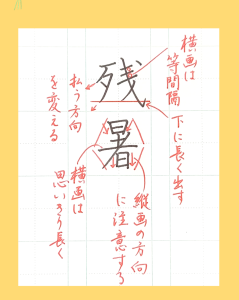 残暑
横画は
等間隔
下に長く出す
払う方向
を変える
縦画の方向
に注意する
横画は
思いきり長く